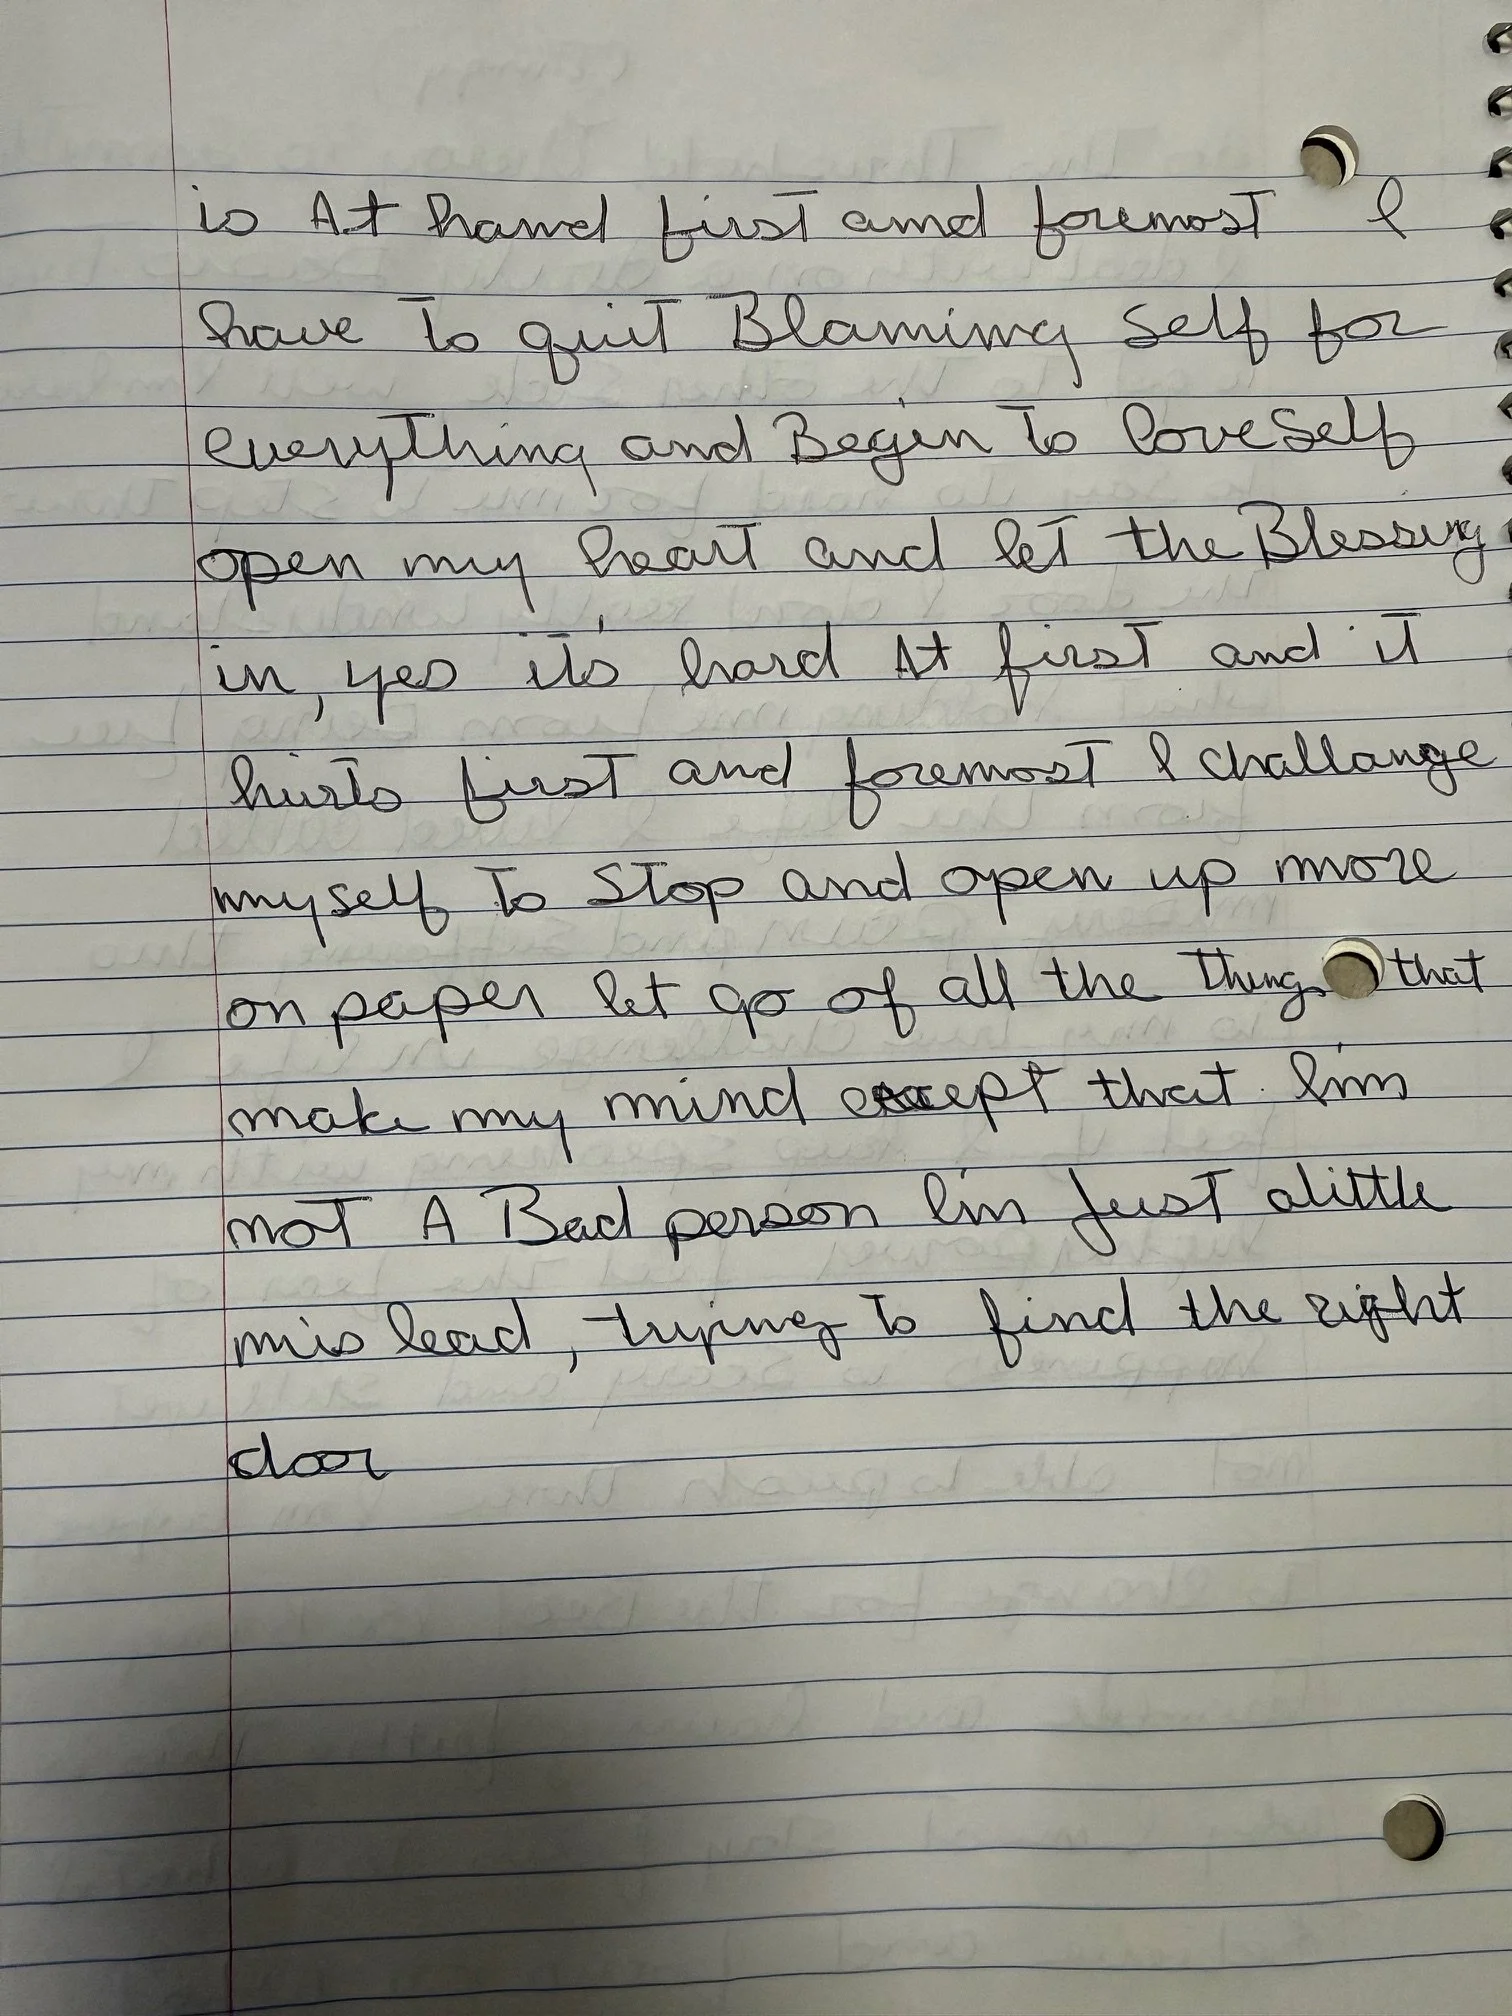 is At hand first and foremost I
have to quit Blaming self for
everything and Begin to love Self
open my heart and let the Blessing
in, yes it's hard At first and it
hurts first and foremost I challange
myself to Stop and open up more
on paper let go of all the things that
make my mind except that I'm
not A Bad person I'm Just alittle
mis lead, trying to find the right
door